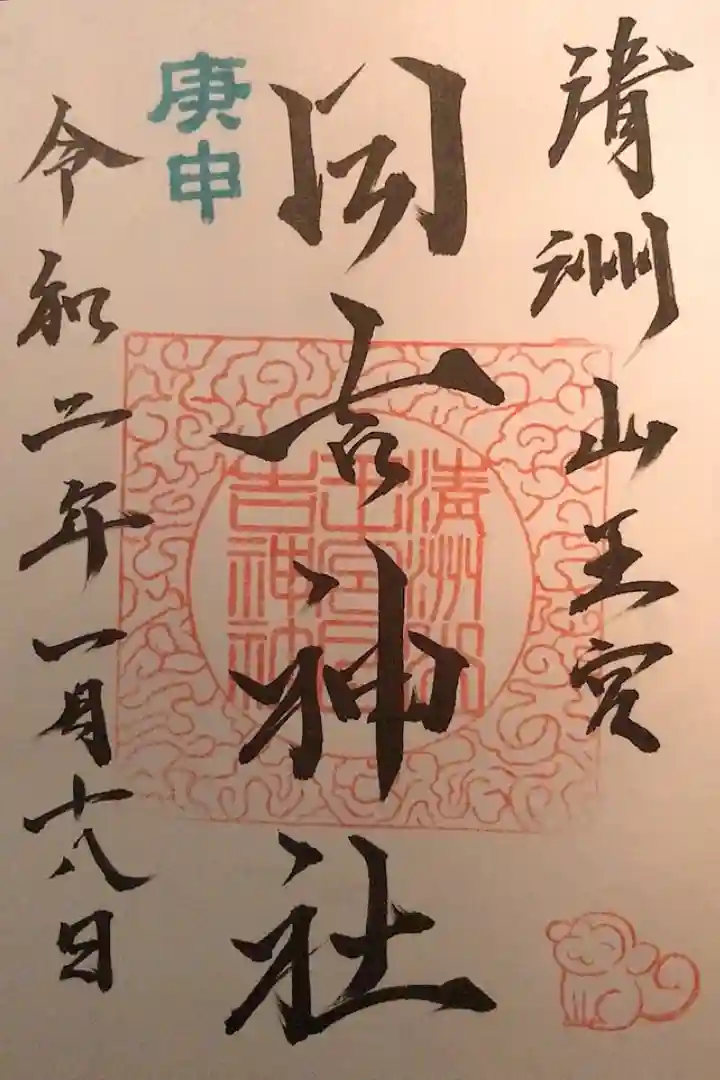 清洲山王宮
日吉神社
庚申
令和二年一月十八日
清洲山
王宮日
吉神社